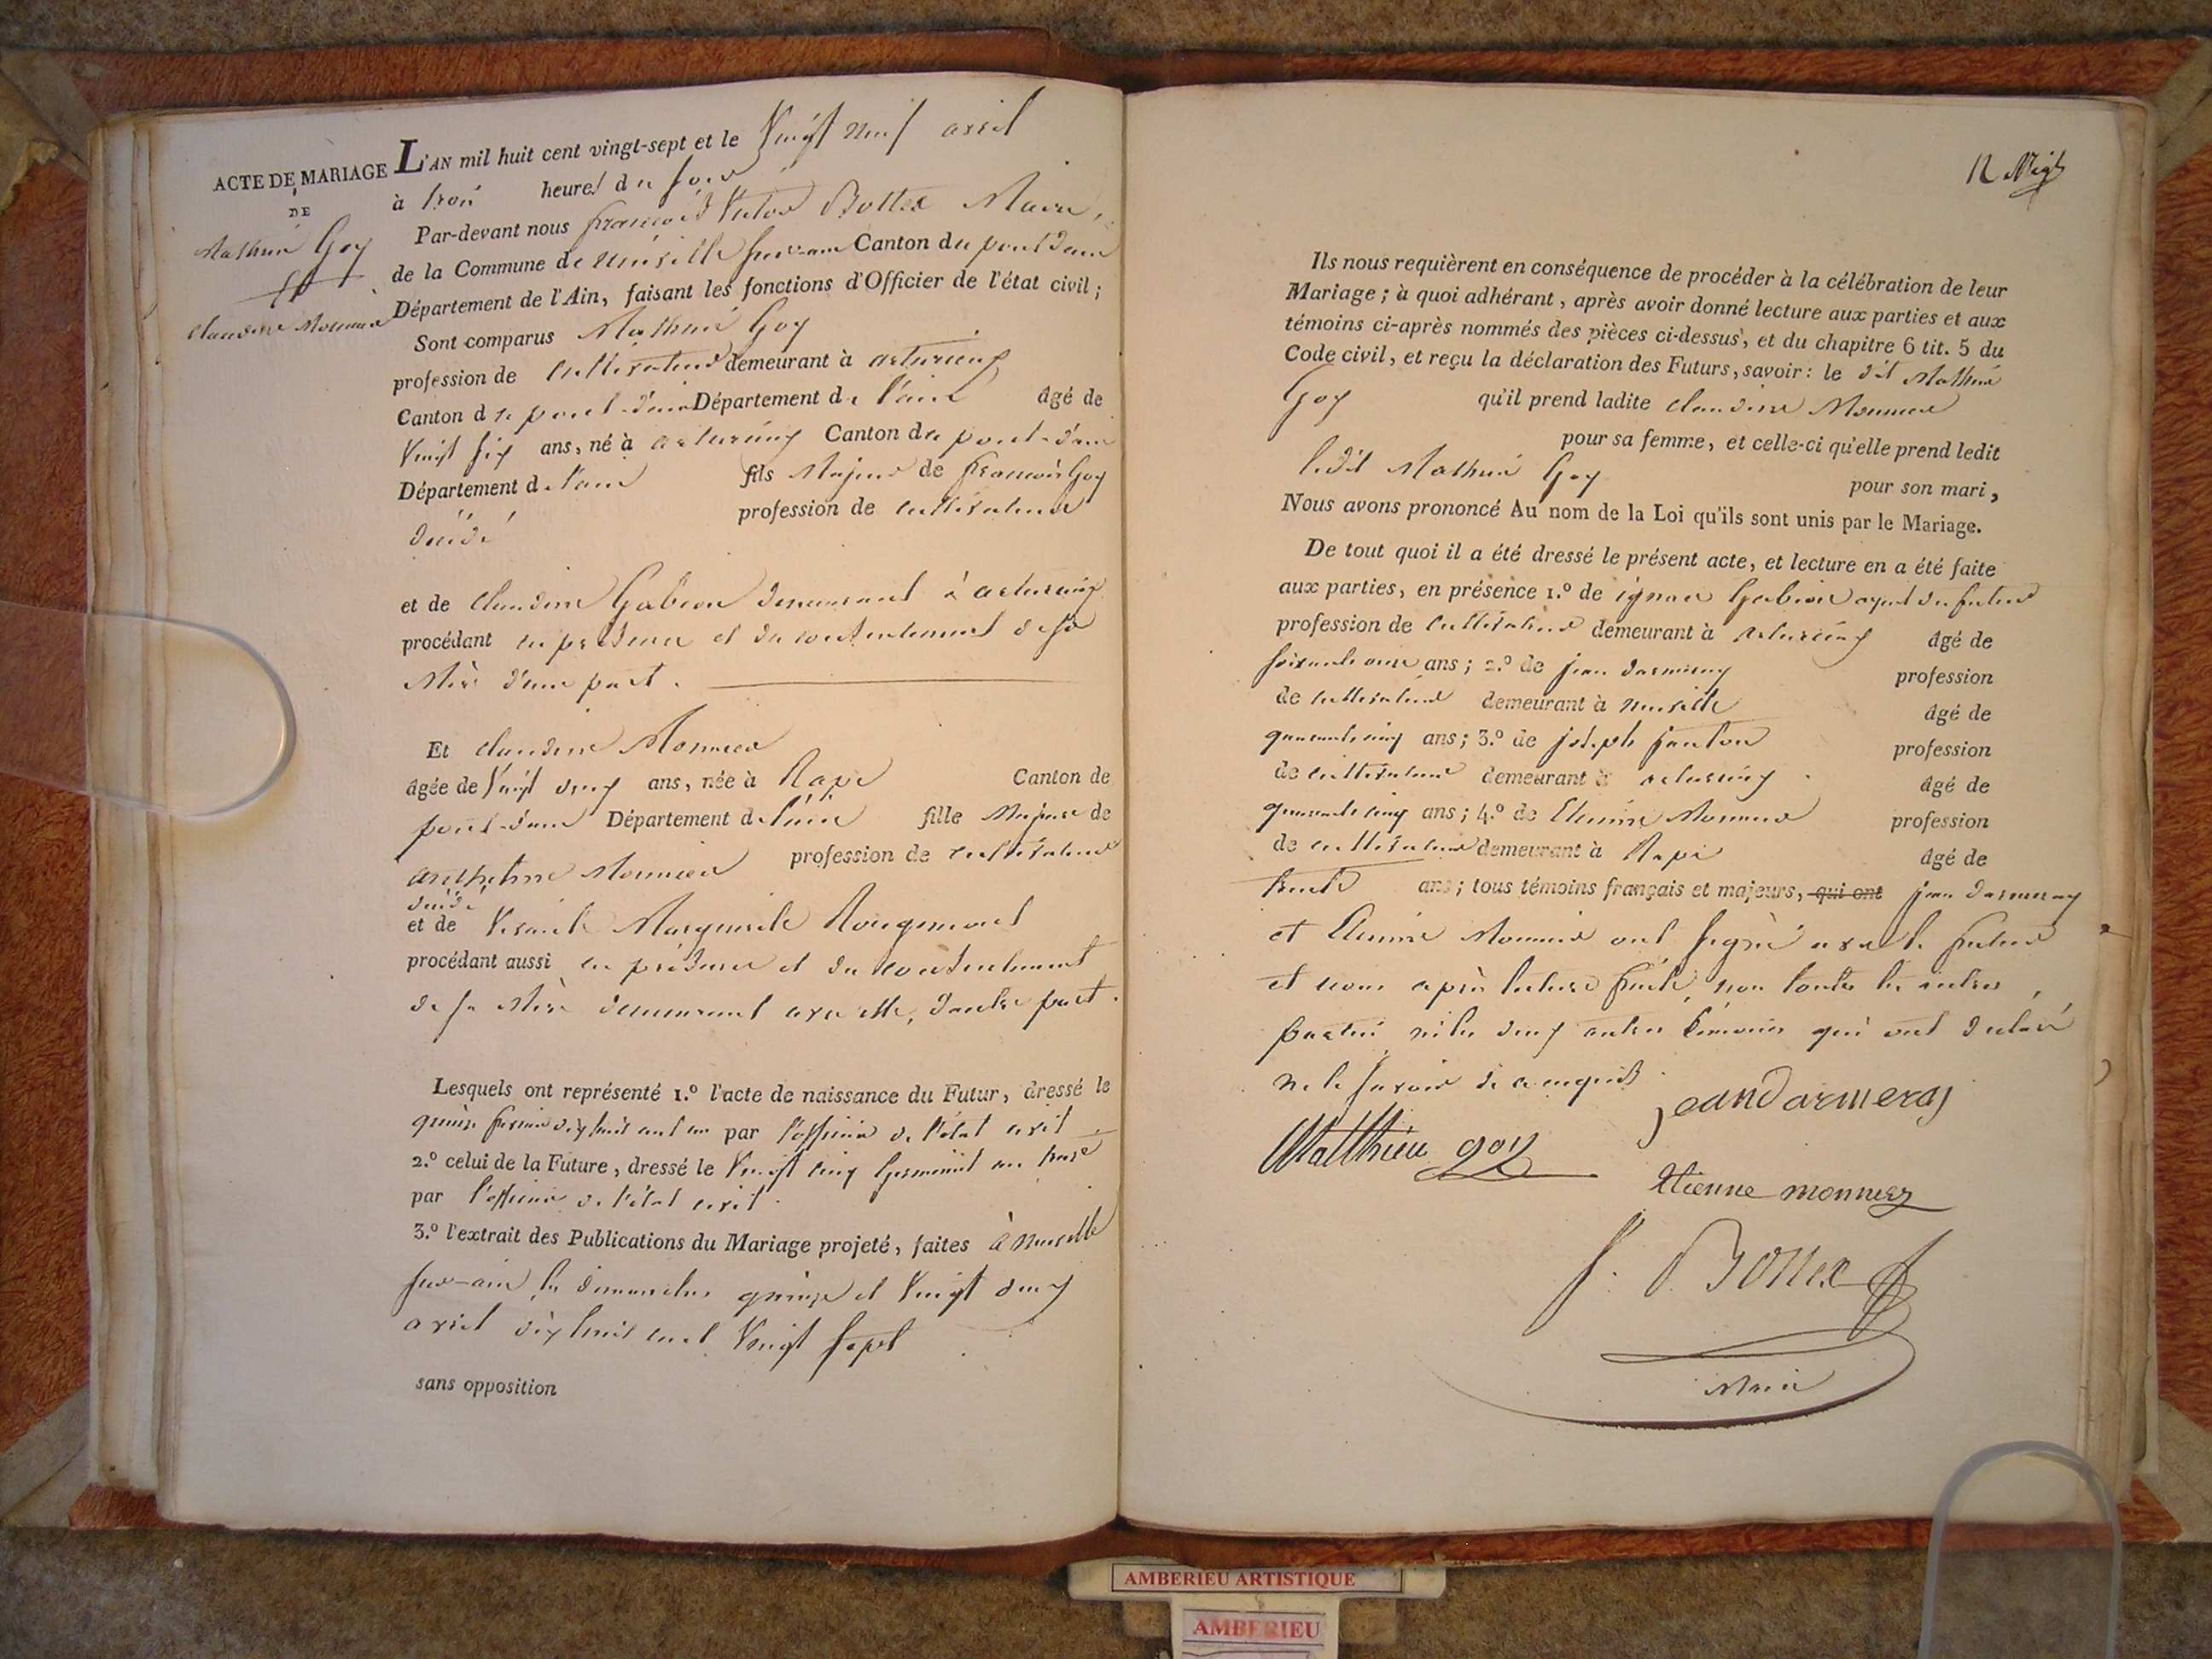 ACTE DE MARIAGE
DE
Mathieu Goy
et
Claudine Monnier
L'AN mil huit cent vingt-sept et le Vingt neuf avril
à trois heures du soir
Par-devant nous François Victor Bottex Maire,
de la Commune de neuville sur-ain Canton du pont d'ain
Département de l'Ain, faisant les fonctions d'Officier de l'état civil;
Sont comparus Mathieu Goy
profession de cultivateur demeurant à
Canton de pont-d'ain Département de l'ain âgé de
Vingt six ans, né à Canton du pont-d'ain
Département de l'ain fils Majeur de françois Goy
décédé profession de cultivateur
et de Claudine Gabion demeurant à
procédant en présence et du consentement de sa
Mère d'une part.
Et Claudine Monnier
âgée de Vingt deux ans, née à Rape Canton de
pont-d'ain Département de l'ain fille Majeure de
anthelme Monnier profession de cultivateur
décédé
et de Marguerite Rougemont
procédant aussi en présence et du consentement
de sa Mère demeurant avec elle, d'autre part.
Lesquels ont représenté 1.º l'acte de naissance du Futur, dressé le
quinze février dix huit cent un par l'officier de l'état civil
2.º celui de la Future, dressé le Vingt cinq germinal an treize
par l'officier de l'état civil
3.º l'extrait des Publications du Mariage projeté, faites à neuville
sur-ain les dimanches quinze et Vingt deux
avril dix huit cent Vingt sept
sans opposition
12
Ils nous requièrent en conséquence de procéder à la célébration de leur
Mariage; à quoi adhérant, après avoir donné lecture aux parties et aux
témoins ci-après nommés des pièces ci-dessus, et du chapitre 6 tit. 5 du
Code civil, et reçu la déclaration des Futurs, savoir: le dit Mathieu
Goy qu'il prend ladite Claudine Monnier
pour sa femme, et celle-ci qu'elle prend ledit
ledit Mathieu Goy pour son mari,
Nous avons prononcé Au nom de la Loi qu'ils sont unis par le Mariage.
De tout quoi il a été dressé le présent acte, et lecture en a été faite
aux parties, en présence 1.º de ignace Gabion ayeul du futur
profession de cultivateur demeurant à âgé de
soixante onze ans; 2.º de jean darmeray profession
de cultivateur demeurant à neuville âgé de
quarante cinq ans; 3.º de joseph profession
de cultivateur demeurant à âgé de
quarante cinq ans; 4.º de Etienne Monnier profession
de cultivateur demeurant à Rape âgé de
trente ans; tous témoins français et majeurs, qui ont jean darmeray
et Etienne Monnier ont signé avec le futur
et nous après lecture faite, non toutes les autres
parties ni les deux autres témoins qui ont déclaré
ne le savoir de ce enquis
jean Darmeray
Matthieu goy
Etienne monnier
f. V. Bottex
Maire
AMBERIEU ARTISTIQUE
AMBERIEU